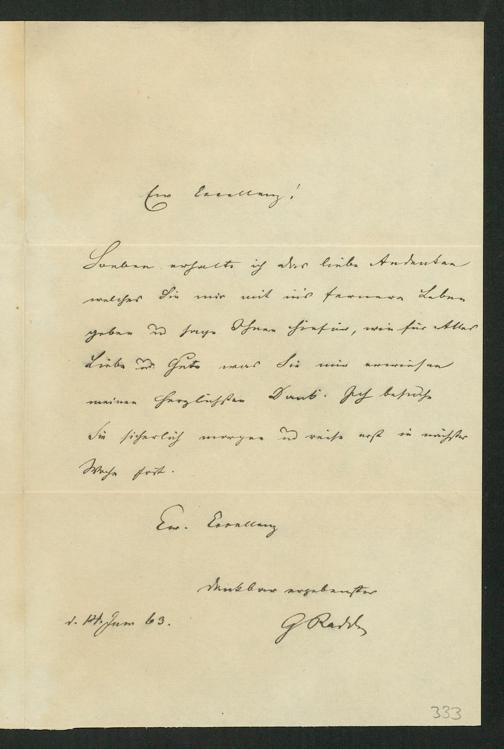 Eur Excellenz!
Soeben erhalte ich das liebe Andenken
welches Sie mir mit in's fernere Leben
geben u sage Ihnen hiefür, wie für Alles
Liebe u Gute was Sie mir erwiesen
meinen herzlichsten Dank. Ich besuche
Sie sicherlich morgen u reise erst in nächster
Woche fort.
Eur. Excellenz
dankbar ergebenster
G Radde
d. 14. Juni 63.
333